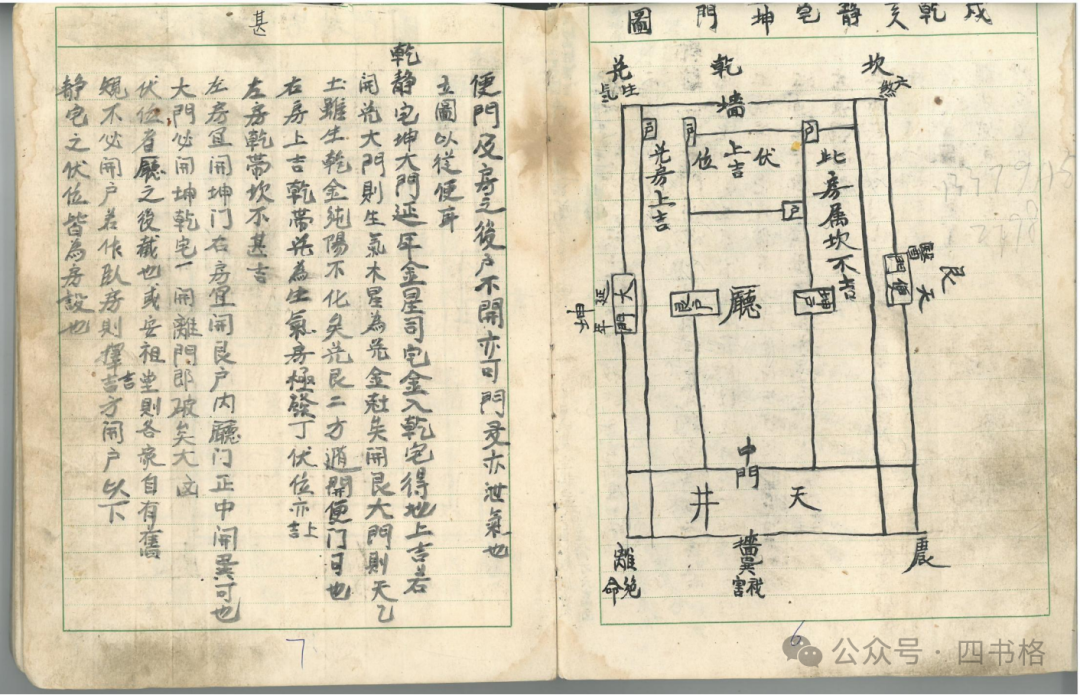 戌乾亥静宅坤門圖
坎
六煞
乾
墙
兑
生氣
户
户
户
伏位上吉
兑房上吉
此房属坎不吉
户
艮
天醫
便門
大門
延年
坤
艮户
廳
坤户
中門
天井
震
墙巽宫
禍
離
絶命
6
便門及房之後户不開亦可門多亦泄氣也
立圖以從便耳
乾静宅坤大門延年金星司宅金入乾宅得地上吉若
開兑大門則生氣木星為兑金尅矣開艮大門則天乙
土雖生乾金純陽不化矣兑艮二方適開便門可也
右房上吉乾帶兑為生氣房極發丁伏位亦上吉
左房乾帶坎不甚吉
左房宜開坤门右房宜開艮户内廳门正中開巽可也
大門必開坤乾宅一開離門即破矣大凶
伏位者廳之後截也或安祖堂則各家自有舊
規不必開户若作臥房則擇吉方開户以下
静宅之伏位皆為房設也
甚
吉
7
公众号·四书格